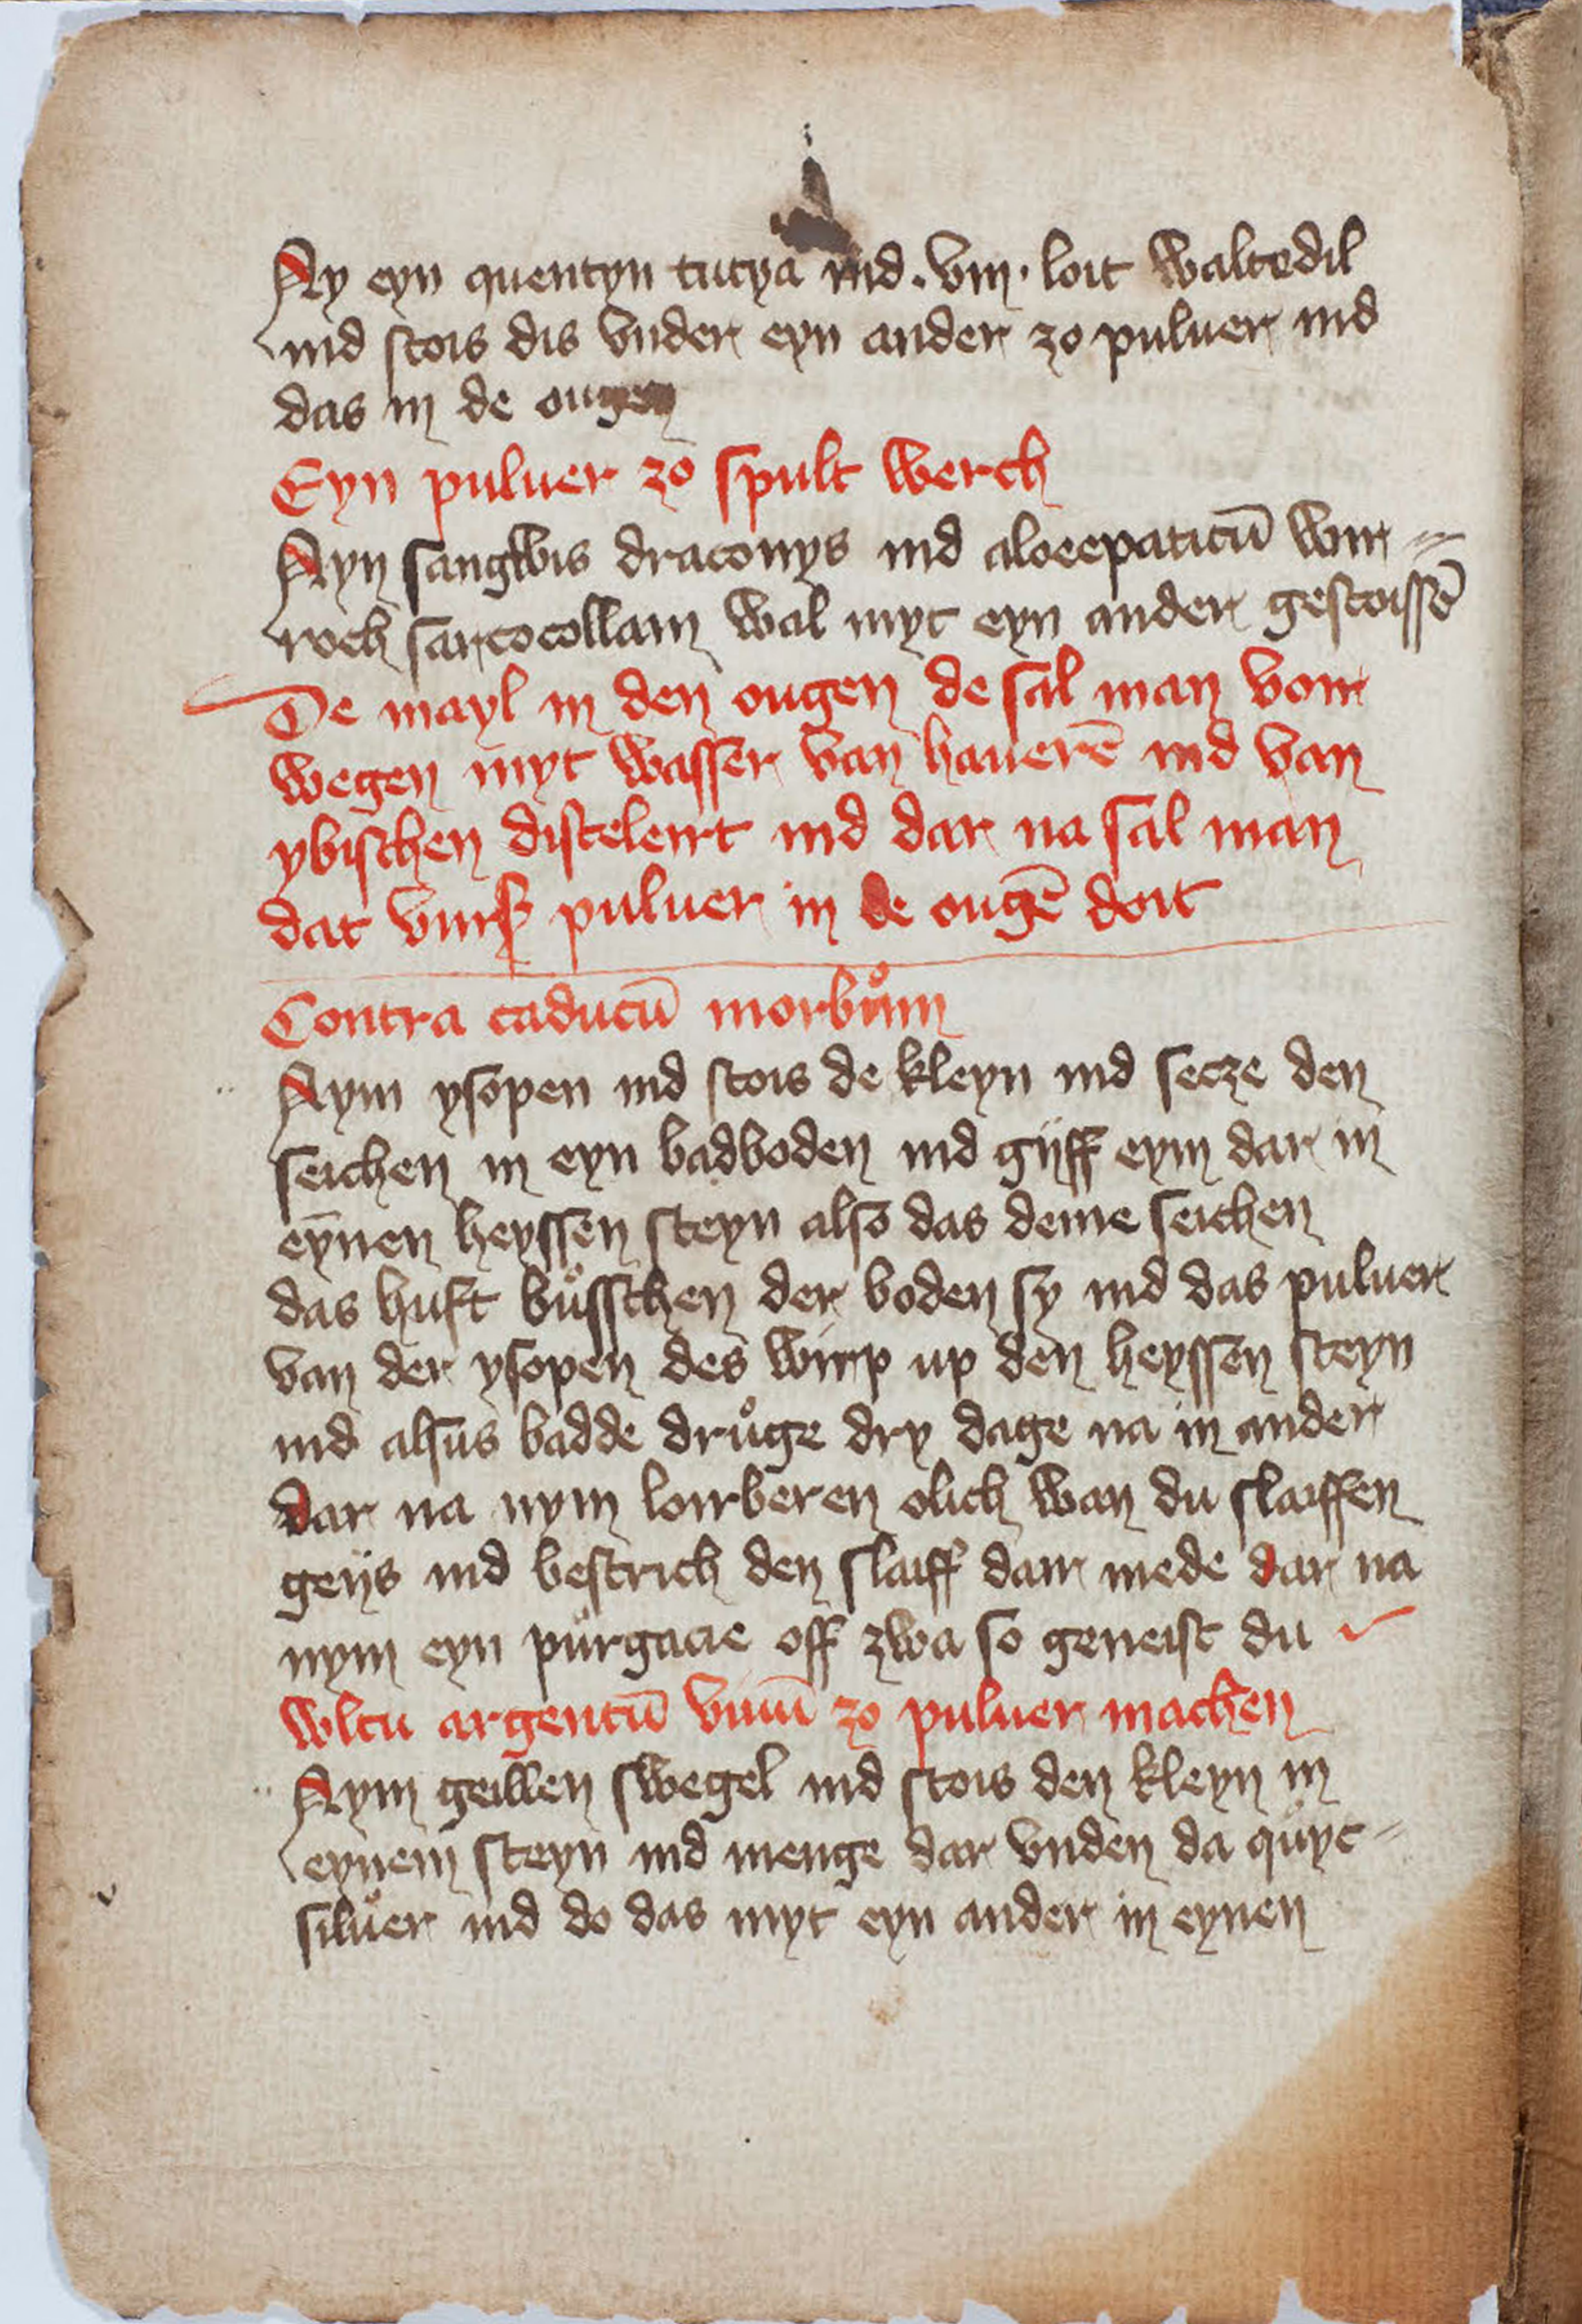 Ny eyn quentyn tucya ind . viij . loit waltedil
ind stois dis vnder eyn ander zo puluer ind
das in de ougen
Eyn puluer zo spult werch
Nyn sangwis draconys ind aloeepaticū wir=
roch sarcocollam wal myt eyn ander gestoissē
De mayl in den ougen de sal man vorr
wegen myt wasser van hauerē ind van
ybischen disteleirt ind dar na sal man
dat vurß puluer in de ougē doit
Contra caducū morbům
Nym ysopen ind stois de kleyn ind secze den
seichen in eyn badboden ind gijff eym dar in
eynen heyssen steyn also das deme seichen
das huft bůsschen der boden sy ind das puluer
van der ysopen des wirp up den heyssen steyn
ind alsus badde drůge dry dage na in ander
dar na nym loirberen olich wan du slaiffen
geijs ind bestrich den slaiff dair mede dar na
nym eyn purgacie off zwa so geneist du
wltu argentū viuū zo puluer machen
Nym geillen swegel ind stois den kleyn in
eynem steyn ind menge dar vnden da quyc=
siluer ind do das myt eyn ander in eynen